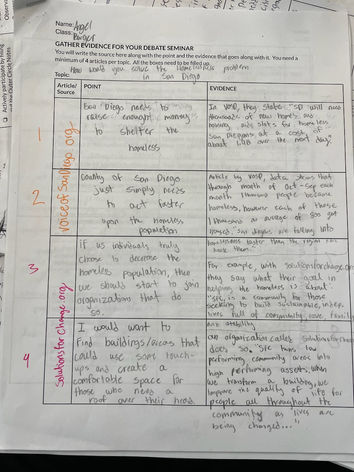 Name: Angel
Class:
GATHER EVIDENCE FOR YOUR DEBATE SEMINAR
You will write the source here along with the point and the evidence that goes along with it. You need a
minimum of 4 articles per topic. All the boxes need to be filled up.
Topic: How would you solve the homelessness problem
in San Diego
Article/
Source
POINT
EVIDENCE
1
2
voiceofSanDiego.org
San Diego needs to
raise enough money
to shelter the
homeless
In VOSD, they state: "SD will need
thousands of new homes and
slots for homeless
San Diegans at a cost of
about
County of San Diego
just simply needs
to act faster
upon the homeless
population
Article by VOSD, data shows that
through month of Oct-Sep each
month thousand people became
homeless, however each of those
thousand an average of 800 got
housed. San Diegans are falling into
homelessness faster than the region can
house them.
3
4
Solutionsforchange.org
if us individuals truly
choose to decrease the
homeless population, then
we should start to join
organizations that do
so.
For example, with solutionsforchange.org
they say what their goal in
helping the homeless is about.
"SFC is a community for those
seeking to build sustainable, indep.
lives full of community, love, family
and stability
I would want to
find buildings/areas that
could use some touch-
ups and create a
comfortable space for
those who need a
roof over their head.
organization called solutionsforchange
does so, "SFC turns low
performing community areas into
high performing assets. When
we transform a building, we
improve the quality of life for
people all throughout the
community as lives are
being changed..."